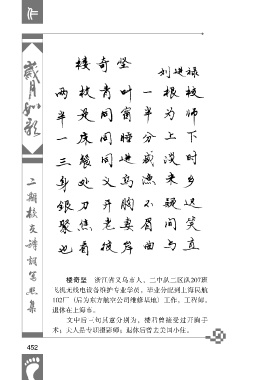 岁月如歌
楼奇坚
刘进禄
两枝青叶一根枝
半是同窗半为师
一床同睡分上下
三餐同进咸淡时
身处义乌渔米乡
银刀开胸不疑迟
聚焦老妻眉间笑
近看彼岸曲与直
楼奇坚 浙江省义乌市人,二中队二区队207班
飞机无线电设备维护专业学员。毕业分配到上海民航
102厂(后为东方航空公司维修基地)工作。工程师。
退休在上海市。
文中后三句其意分别为,楼君曾接受过开胸手
术;夫人是专职摄影师;退休后曾去美国小住。
452